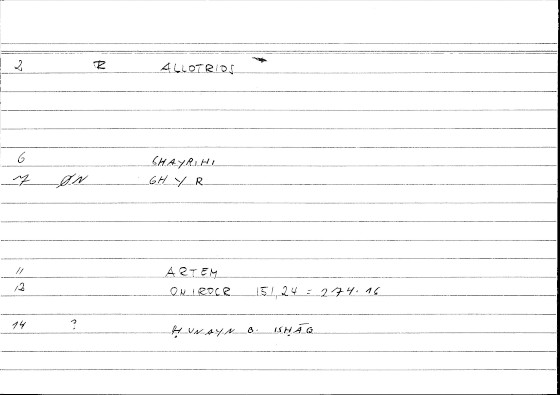 2 R ALLOTRIOS
6 GHAYRIHI
7 ØN GHYR
11 ARTEM
12 ONIROCR 151,24 = 274.16
14 ? ḤUNAYN B. ISḤĀQ